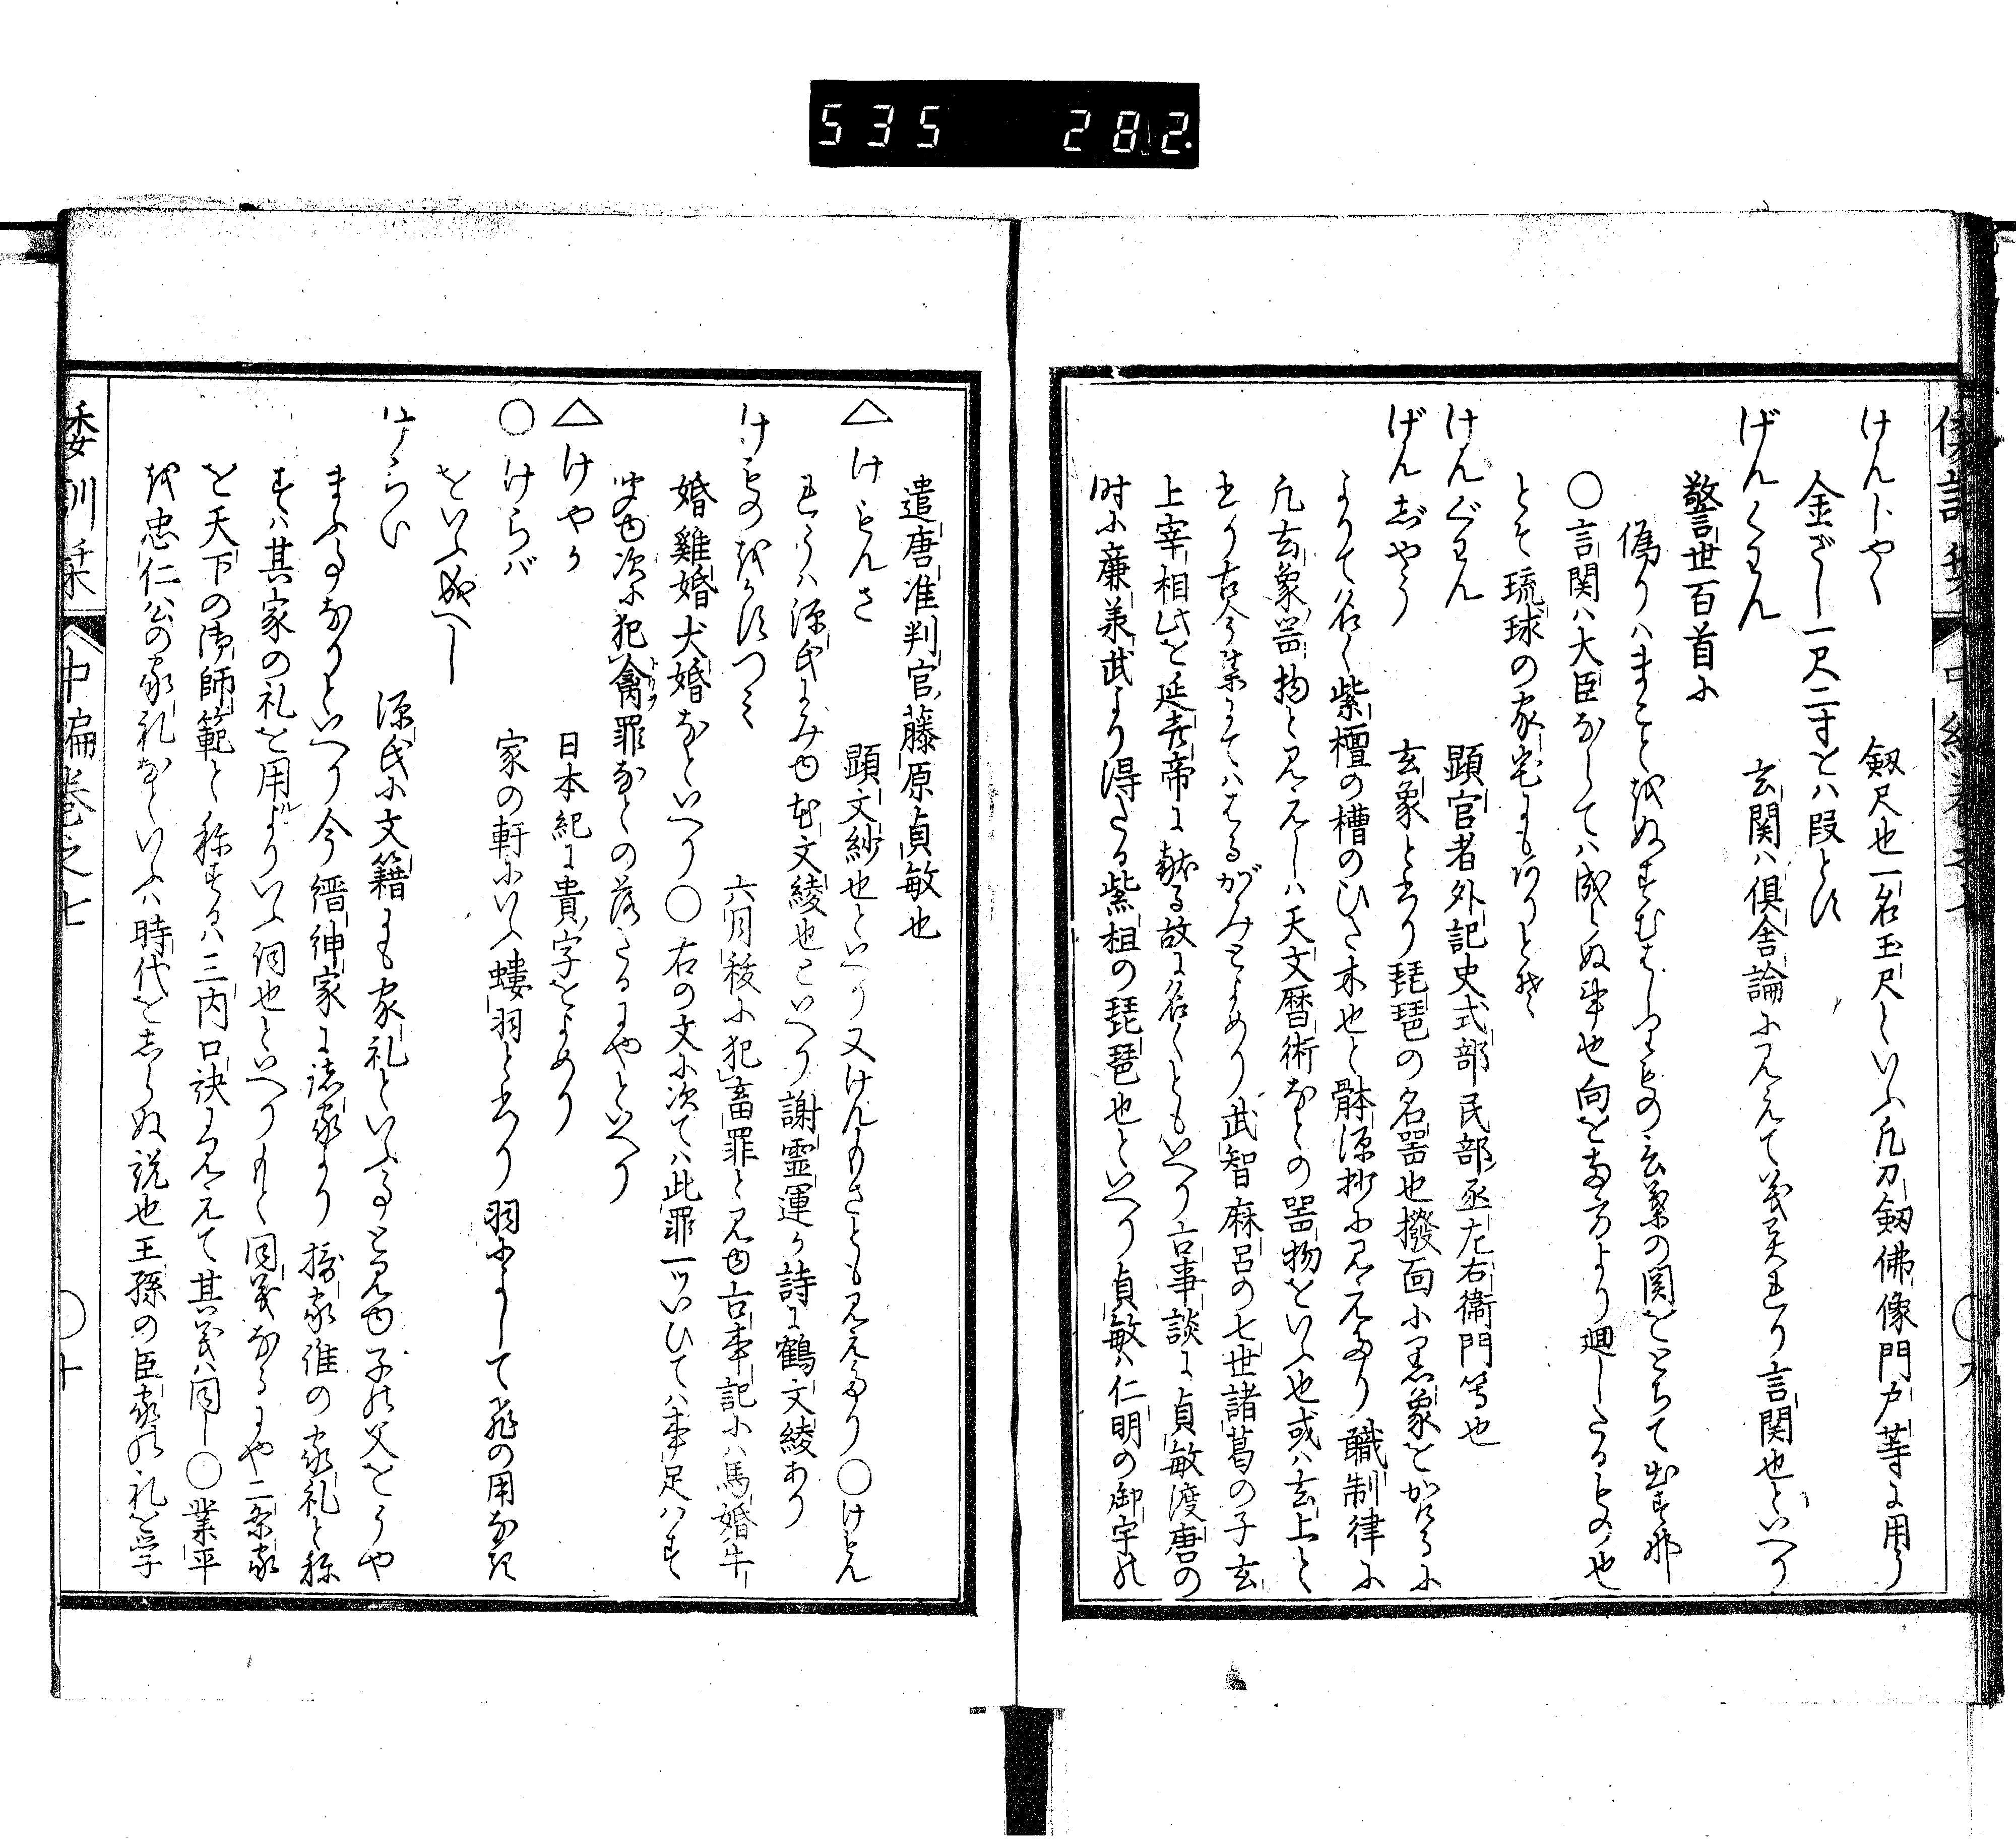 535 282.
けんしやく　劔尺也一名玉尺といふ凡刀劔佛像門戸等に用う
金ざし一尺二寸をは段とす
げんくわん　玄関は倶舎論に見えて義異れり言関也といへり
警世百首に
偽りはまことをぬすむはしりものの言葉の関をとちて出すな
〇言関は大臣ならては成らぬ事也向を両方より廻したるもの也
とそ琉球の家宅にもありとそ
けんぐわん　顕官者外記史式部民部丞左右衛門等也
げんじやう　玄象と書り琵琶の名器也撥面に黒象をかけるに
よりて名く紫檀の槽のひた木也と躰源抄に見えたり職制律に
凡玄象器物と見えしは天文暦術なとの器物をいふ也或は玄上と
書り古今集にてははるがみとよめり武智麻呂の七世諸葛の子玄
上宰相此を延喜帝に献る故に名くともいへり古事談に貞敏渡唐の
時に廉承武より得たる紫檀の琵琶也といへり貞敏は仁明の御宇の
遣唐准判官藤原貞敏也
△けもんさ　顕文紗也といへり又けんもさとも見えたり〇けもん
れうは源氏にみゆ花文綾也といへり謝霊運か詩に鶴文綾あり
けものをかすつみ　六月祓に犯畜罪と見ゆ古事記には馬婚牛
婚雞婚犬婚なといへり〇右の文に次ては此罪一ツいひては事足はす
必次に犯禽罪なとの落たるにやといへり
△けやか　日本紀に貴字をよめり
〇けらば　家の軒にいふ螻羽と書り羽にして飛の用なき
をいふ成へし
けらい　源氏に文籍にも家礼といふ事と見ゆ子の父をうや
まふ事なりといへり今縉紳家に諸家より摂家誰の家礼と称
すは其家の礼を用よりいふ詞也といへりもと同義なるにや二条家
を天下の御師範と称するは三内口訣に見えて其義は同し〇業平
を忠仁公の家礼なといふは時代をしらぬ説也王孫の臣家の礼を学
倭訓栞　中編巻之七　〇十